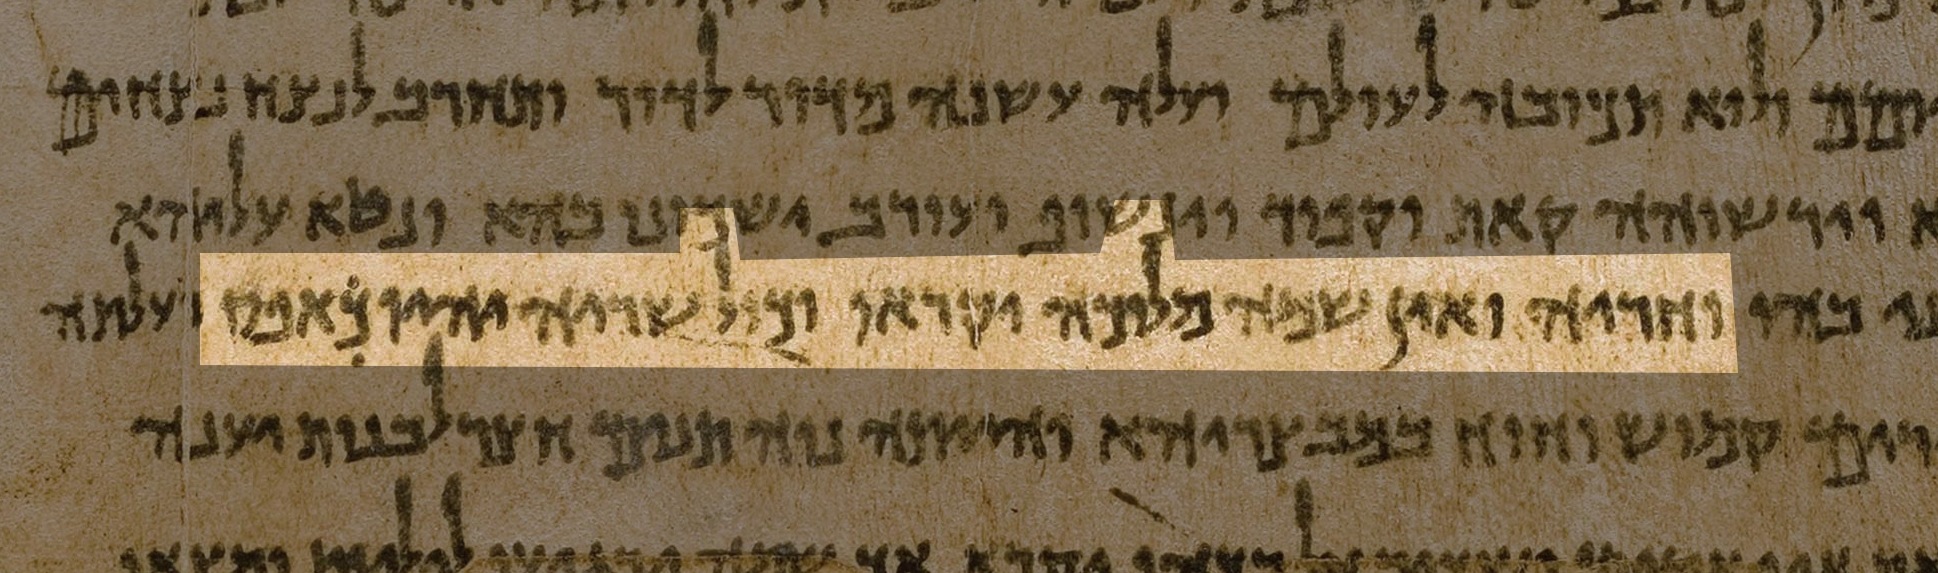 ולוא תכבה לעולם ועלה עשנה מדור לדור ותחרב לנצח נצחים
וירשוהה קאת וקפוד וינשוף ועורב ישכונו בהא ונטא עליהא
בהו וחוריה ואין שמה מלוכה יקראו וכול שריה יהיו כאפס ועלתה
קמוש וחוח במבצריהא והייתה נוה תנים חצר לבנות יענה